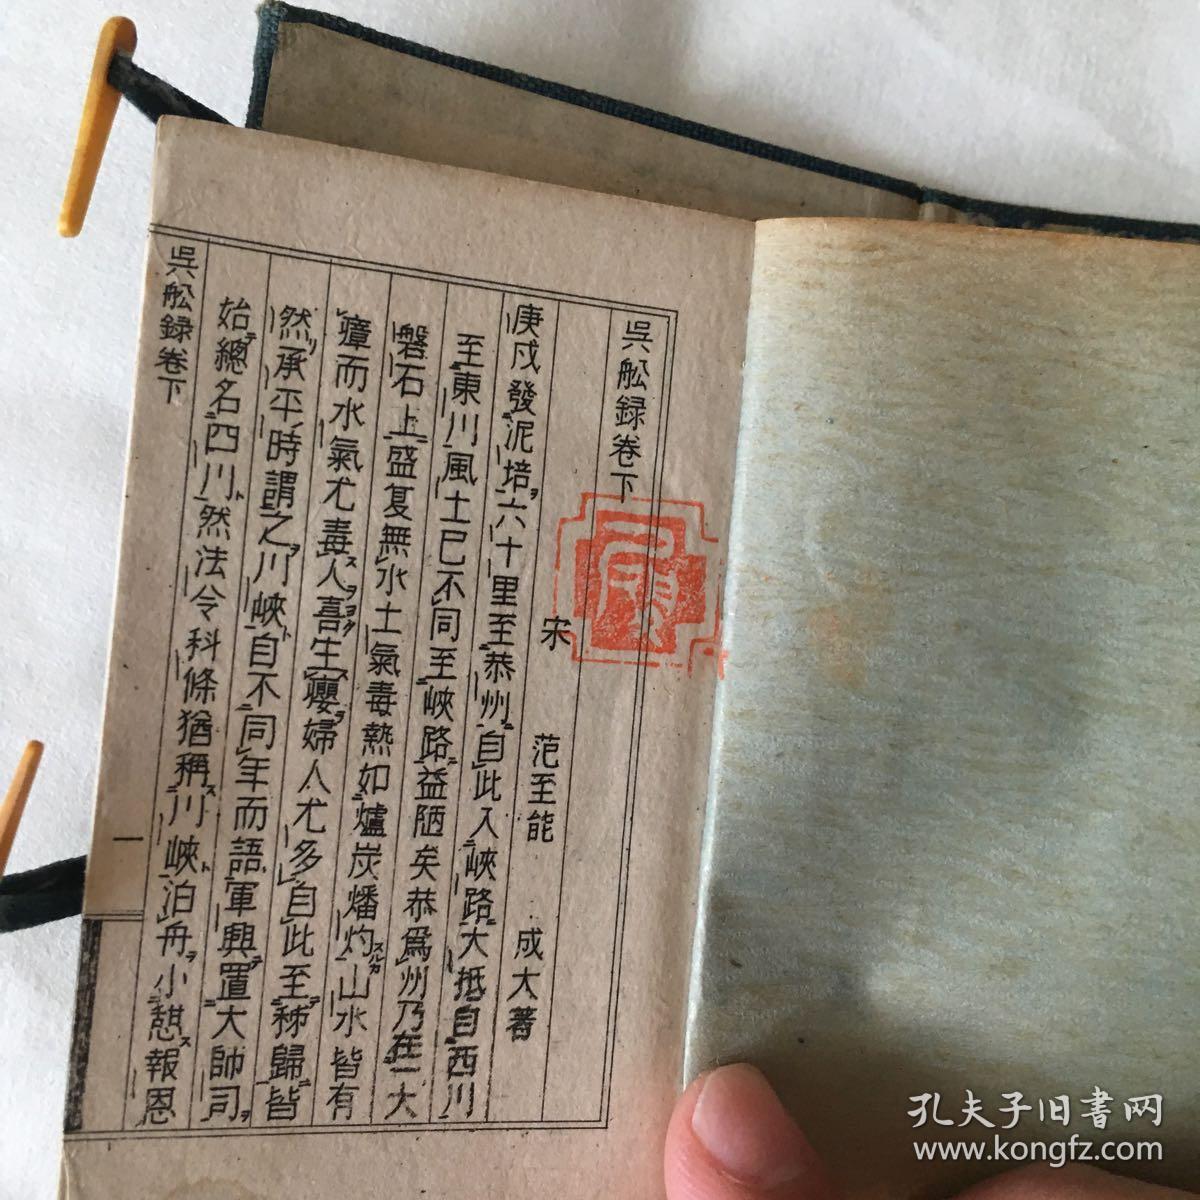 吳船録卷下
宋 范至能 成大著
庚戍發泥培六十里至恭州自此入峽路大抵自西川
至東川風土已不同至峽路益陋矣恭爲州乃在一大
磐石上盛夏無水土氣毒熱如爐炭燔灼山水皆有
瘴而水氣尤毒人喜生癭婦人尤多自此至秭歸皆
然承平時謂之川峽自不同年而語軍興置大帥司
始總名四川然法令科條猶稱川峽泊舟小憇報恩
吳船録卷下
一
孔夫子旧書网
www.kongfz.com